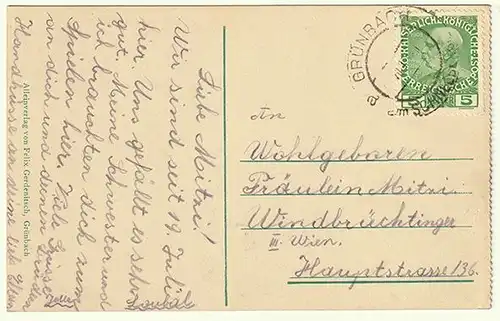 Liebe Mitzi!
Wir sind seit 19. Juli
hier. Uns gefällt es sehr
gut. Meine Schwester und
ich brauchten dich zum
Spielen hier. Viele Grüsse
an dich und deinen Bruder
Handküsse an deine lieb. Eltern
Alleinverlag von Felix Gerdenitsch, Grünbach
GRÜNBACH
KAISERLICHE KÖNIGLICHE
ÖSTERREICHISCHE
5 5
An
Wohlgeboren
Fräulein Mitzi
Windbrüchtinger
III. Wien.
Hauptstrasse 136.